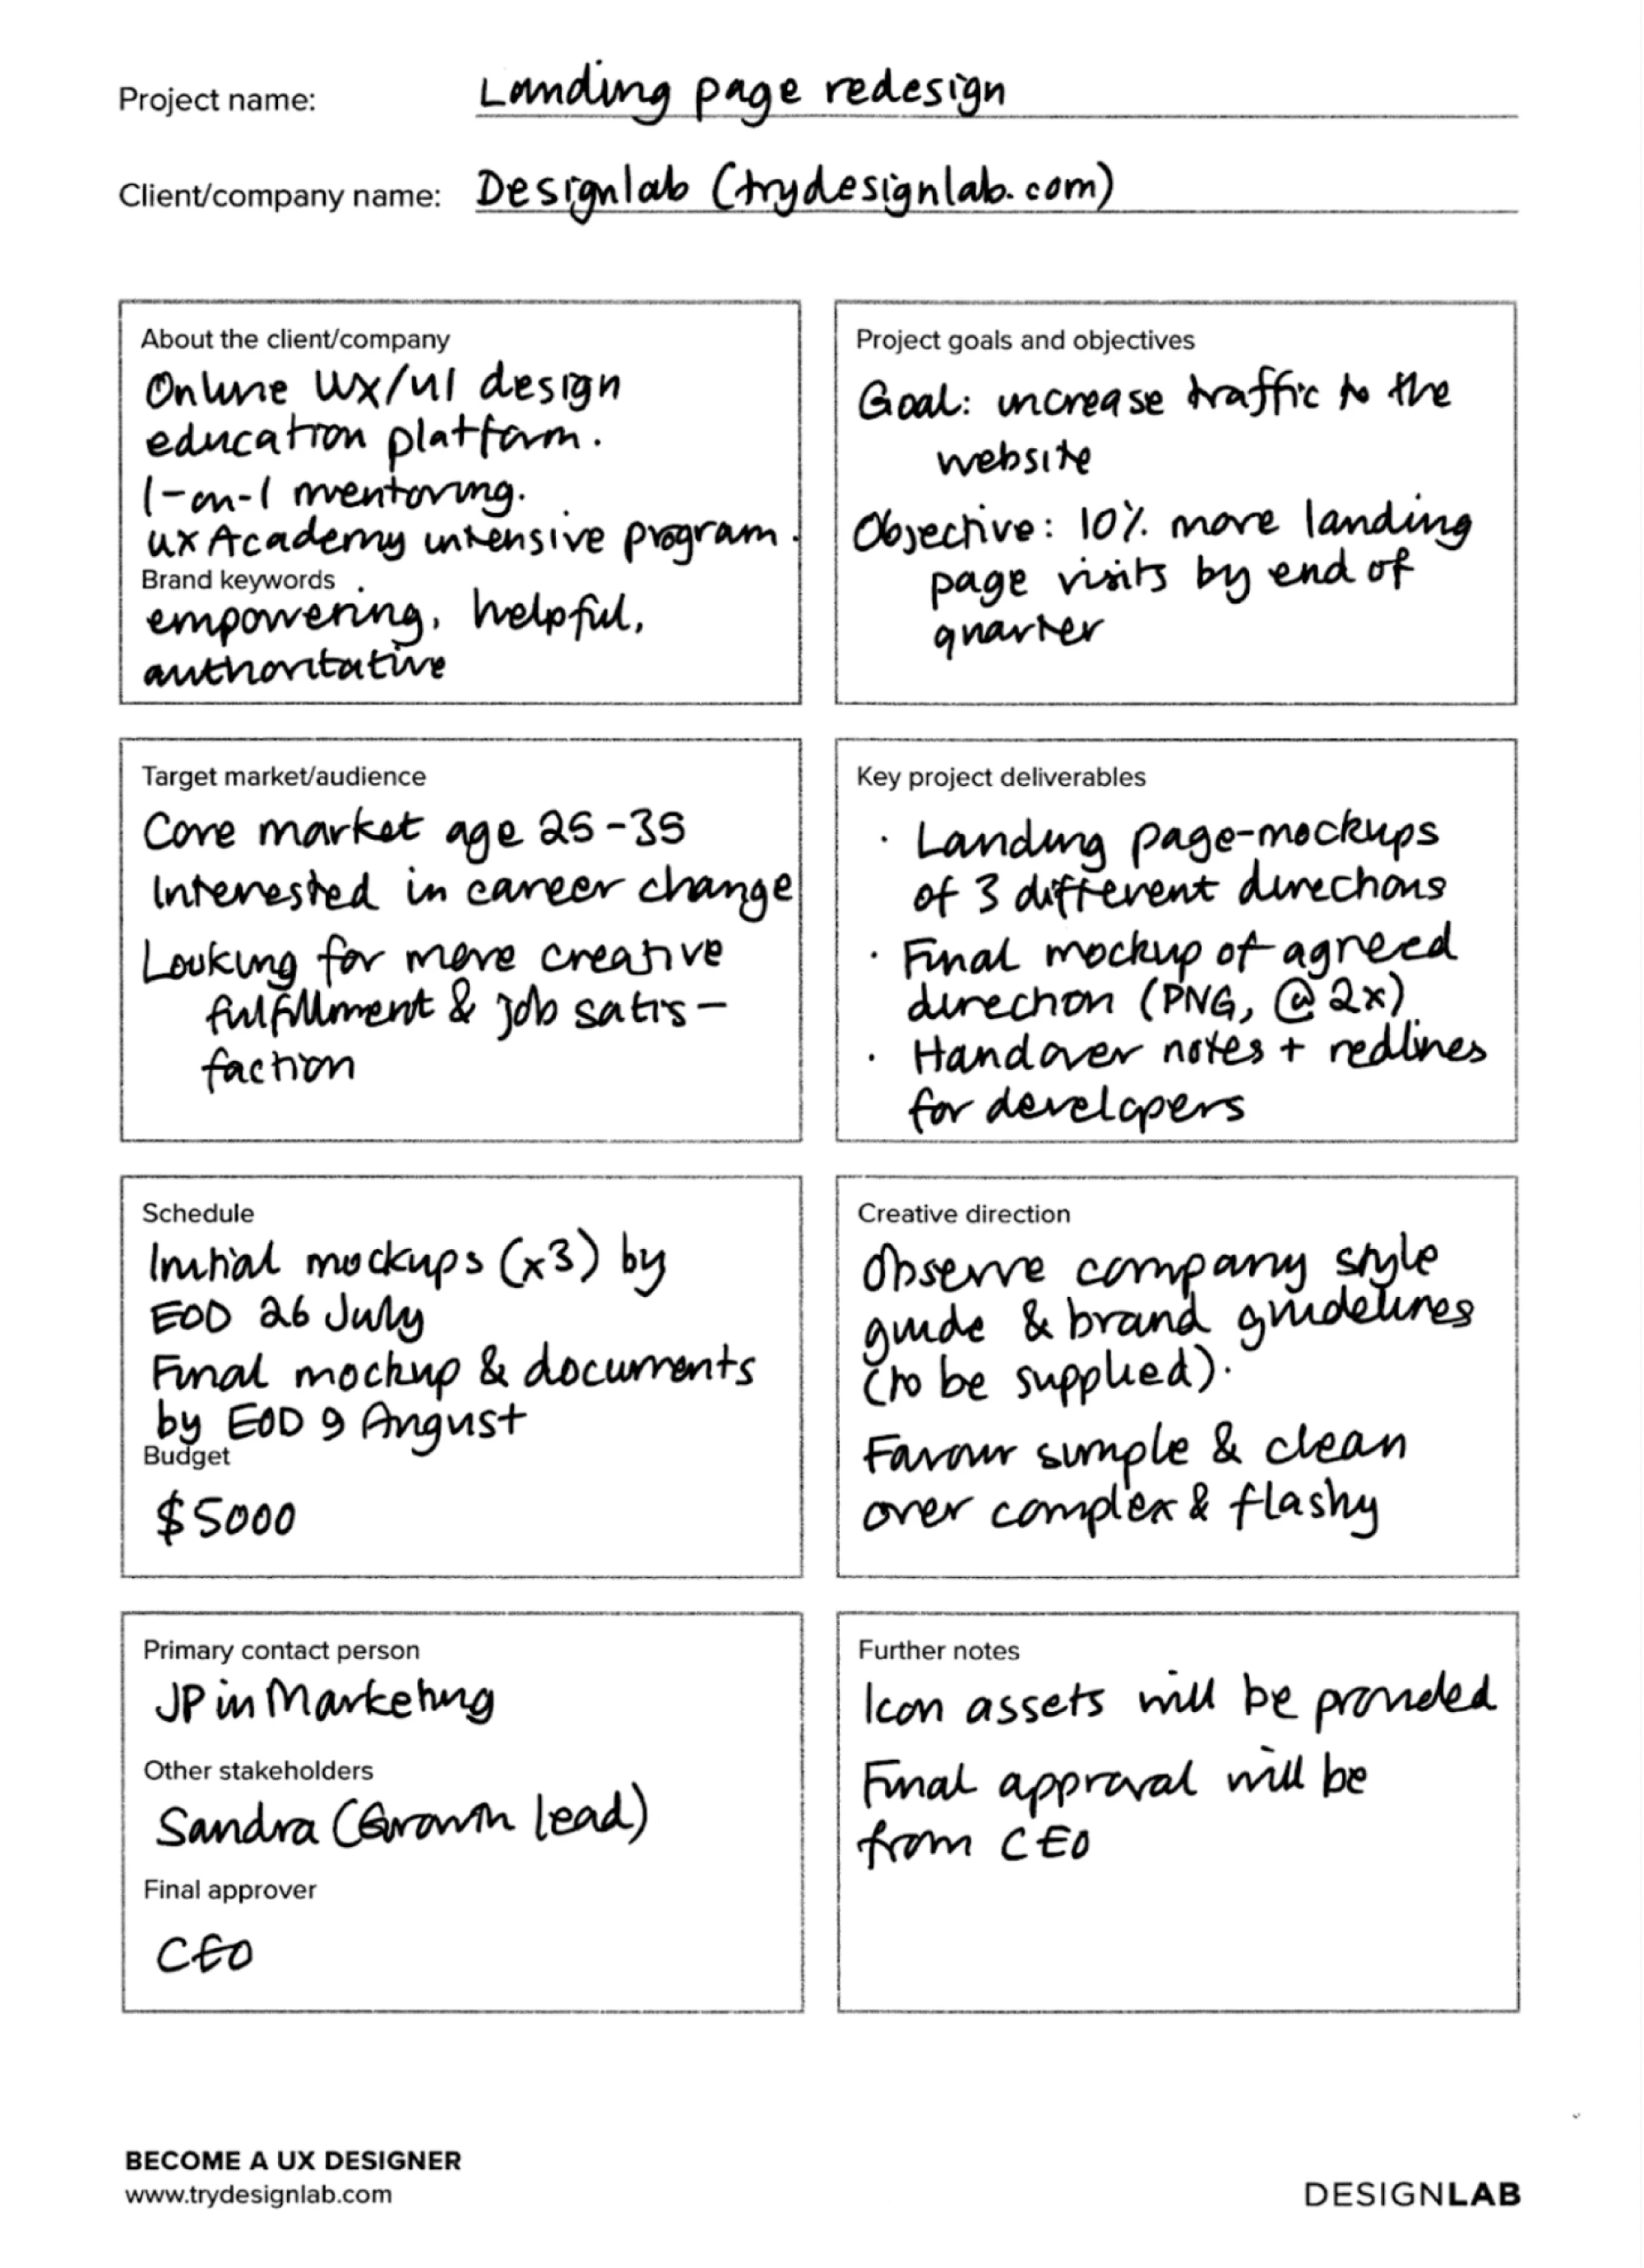 Project name: Landing page redesign
Client/company name: Designlab (trydesignlab.com)
About the client/company
Online UX/UI design
education platform.
1-on-1 mentoring.
UX Academy intensive program.
Brand keywords
empowering, helpful,
authoritative
Project goals and objectives
Goal: increase traffic to the
website
Objective: 10% more landing
page visits by end of
quarter
Target market/audience
Core market age 25-35
Interested in career change
Looking for more creative
fulfillment & job satis-
faction
Key project deliverables
· Landing page-mockups
of 3 different directions
· Final mockup of agreed
direction (PNG, @2x)
· Handover notes + redlines
for developers
Schedule
Initial mockups (x3) by
EOD 26 July
Final mockup & documents
by EOD 9 August
Budget
$5000
Creative direction
Observe company style
guide & brand guidelines
(to be supplied).
Favour simple & clean
over complex & flashy
Primary contact person
JP in Marketing
Other stakeholders
Sandra (Growth lead)
Final approver
CEO
Further notes
Icon assets will be provided
Final approval will be
from CEO
BECOME A UX DESIGNER
www.trydesignlab.com
DESIGNLAB